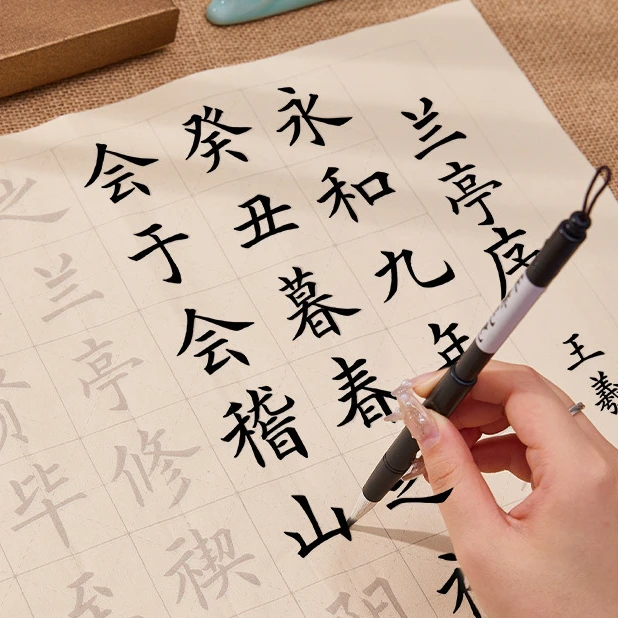 王羲
兰亭序
永和九年
癸丑暮春之
会于会稽山阴
之兰亭修禊
贤毕至